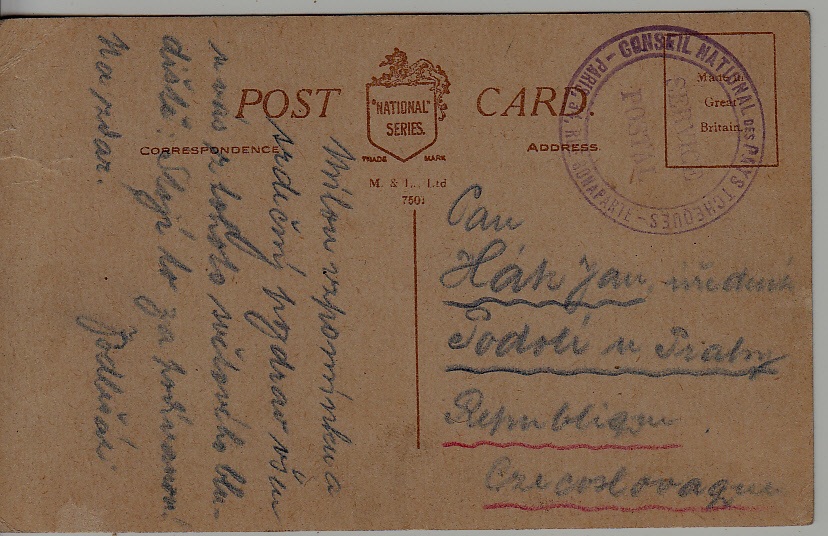 POST CARD.
"NATIONAL"
SERIES.
TRADE MARK
CORRESPONDENCE
ADDRESS.
M. & L., Ltd
750
Made in
Great
Britain.
CONSEIL NATIONAL DES PAYS TCHEQUES - PARIS, RUE BONAPARTE -
SERVICE
POSTAL
Milou vzpomínku a
srdečný pozdrav všem
u vás z tohoto světového blu-
diště. Stojí to za podívanou!
Na zdar.
Pan
Hák Jan, úředník
Podolí u Prahy
Republique
Czecoslovaque